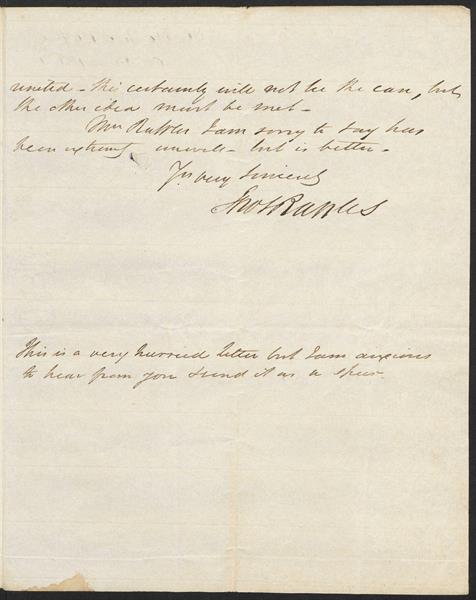 united - this certainly will not be the case, but
the other idea must be met -
Mrs Raffles I am sorry to say has
been extremely unwell - but is better -
Yrs very sincerely
Thos Raffles
This is a very hurried letter but I am anxious
to hear from you & send it as a